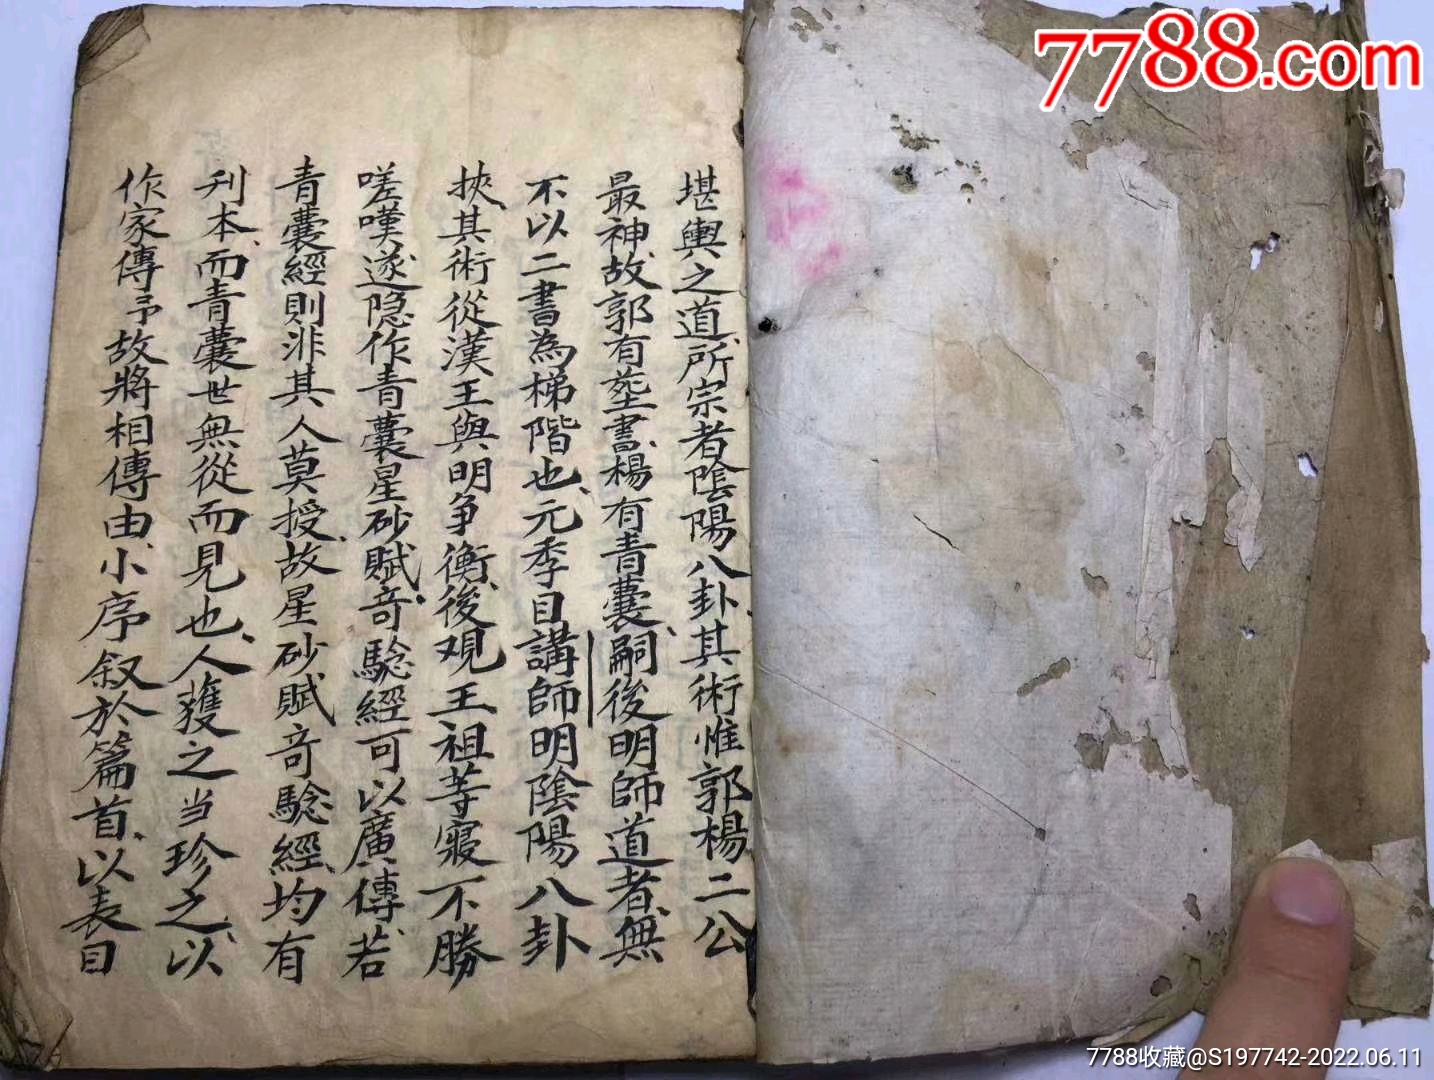 堪輿之道、所宗者陰陽八卦、其術惟郭楊二公
最神、故郭有葬書、楊有青囊、嗣後明師道者、無
不以二書為梯階也、元季目講師明陰陽八卦
挾其術從漢王與明爭衡、後观王祖等寢不勝
嗟嘆、遂隐作青囊星砂賦、竒驗經可以廣傳、若
青囊經則非其人莫授、故星砂賦竒驗經、均有
刋本、而青囊世無從而見也、人獲之当珍之、以
作家傳予故將相傳由、小序叙於篇首、以表目
7788.com
7788收藏@S197742-2022.06.11